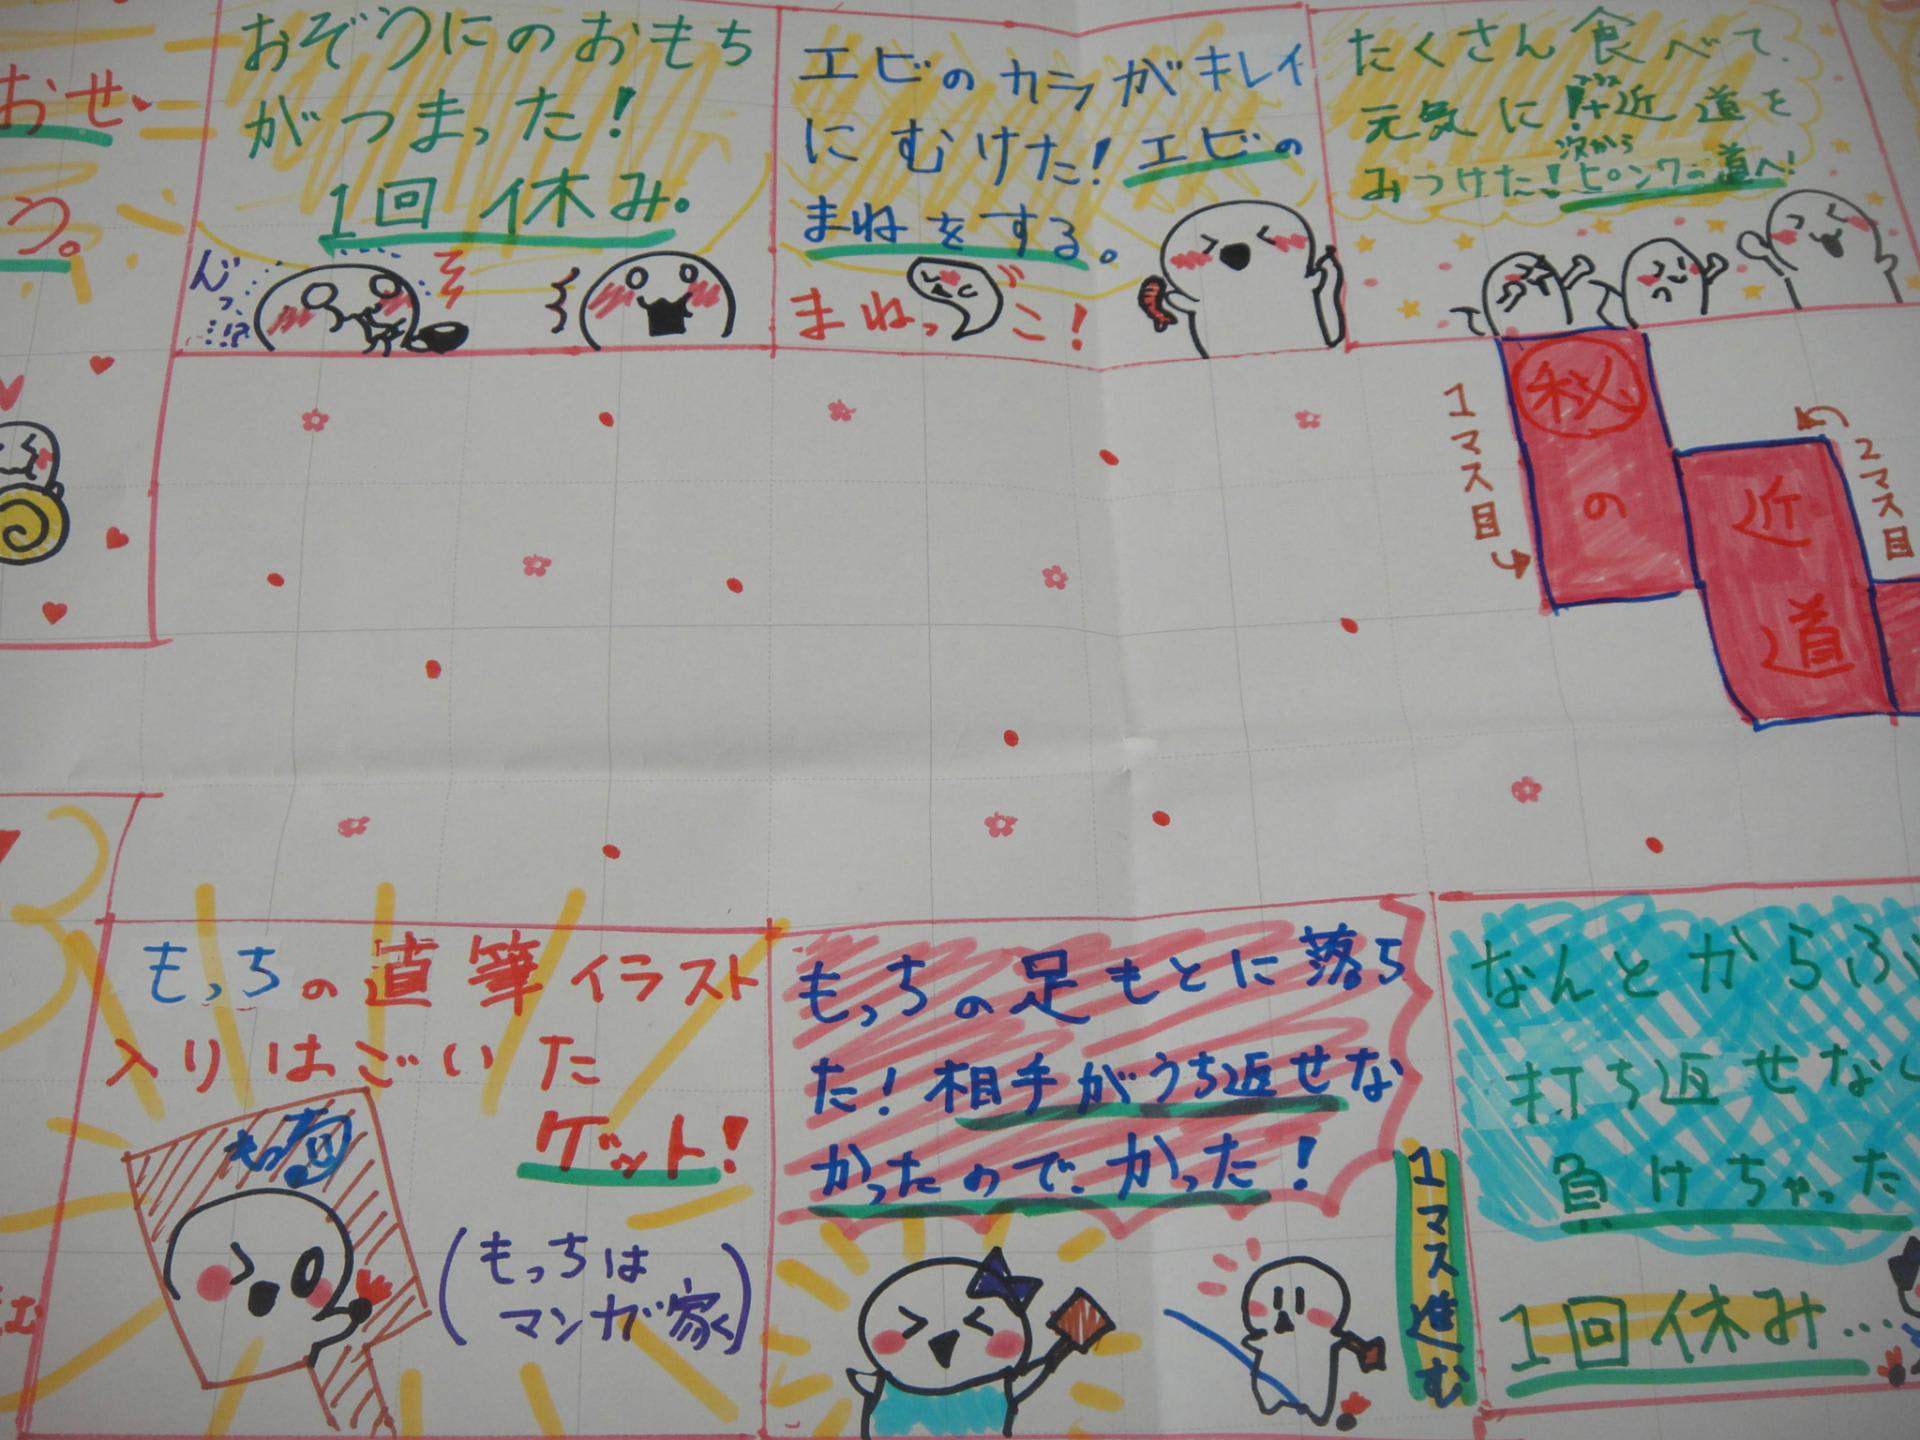 おせ
う。
おぞうにのおもち
がつまった!
1回休み。
んっ…!?
エビのカラがキレイ
にむけた!エビの
まねをする。
まねっこ!
たくさん食べて
元気に近道を
みつけた!ピンクの道へ!
次から
1マス目
㊙の
近道
2マス目
もっちの直筆イラスト
入りはごいた
ゲット!
もっち
(もっちは
マンガ家)
もっちの足もとに落ち
た!相手がうち返せな
かったので、かった!
1マス進む
なんとからぶ
打ち返せな
負けちゃった
1回休み…
む